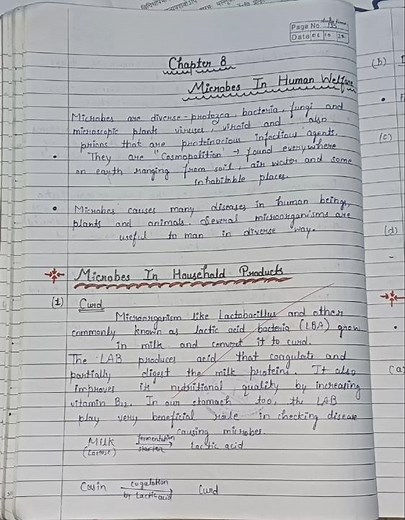 Page No.
Date
Chapter 8
Microbes In Human Welfare
Microbes are diverse - protozoa, bacteria, fungi and
microscopic plants viruses, viroid and also
prions that are proteinacious infectious agents.
• They are "Cosmopolition → found everywhere
on earth ranging from soil, air water and some
inhabitable places.
• Microbes causes many diseases in human beings,
plants and animals. Several microorganisms are
useful to man in diverse way.
Microbes In Household Products
(1) Curd
Microorganism like Lactobacillus and other
commonly known as lactic acid bacteria (LBA) grow
in milk and convert it to curd.
The LAB produces acid that coagulats and
partially digest the milk protein. It also
improves it nutritional quality by increasing
vitamin B12. In our stomach too, the LAB
play very beneficial role in checking disease
causing microbes.
Milk fermentation Lactic acid
(Lactose) starter
Casin cogulation Curd
by Lactic acid
(b)
(c)
(d)
(a)